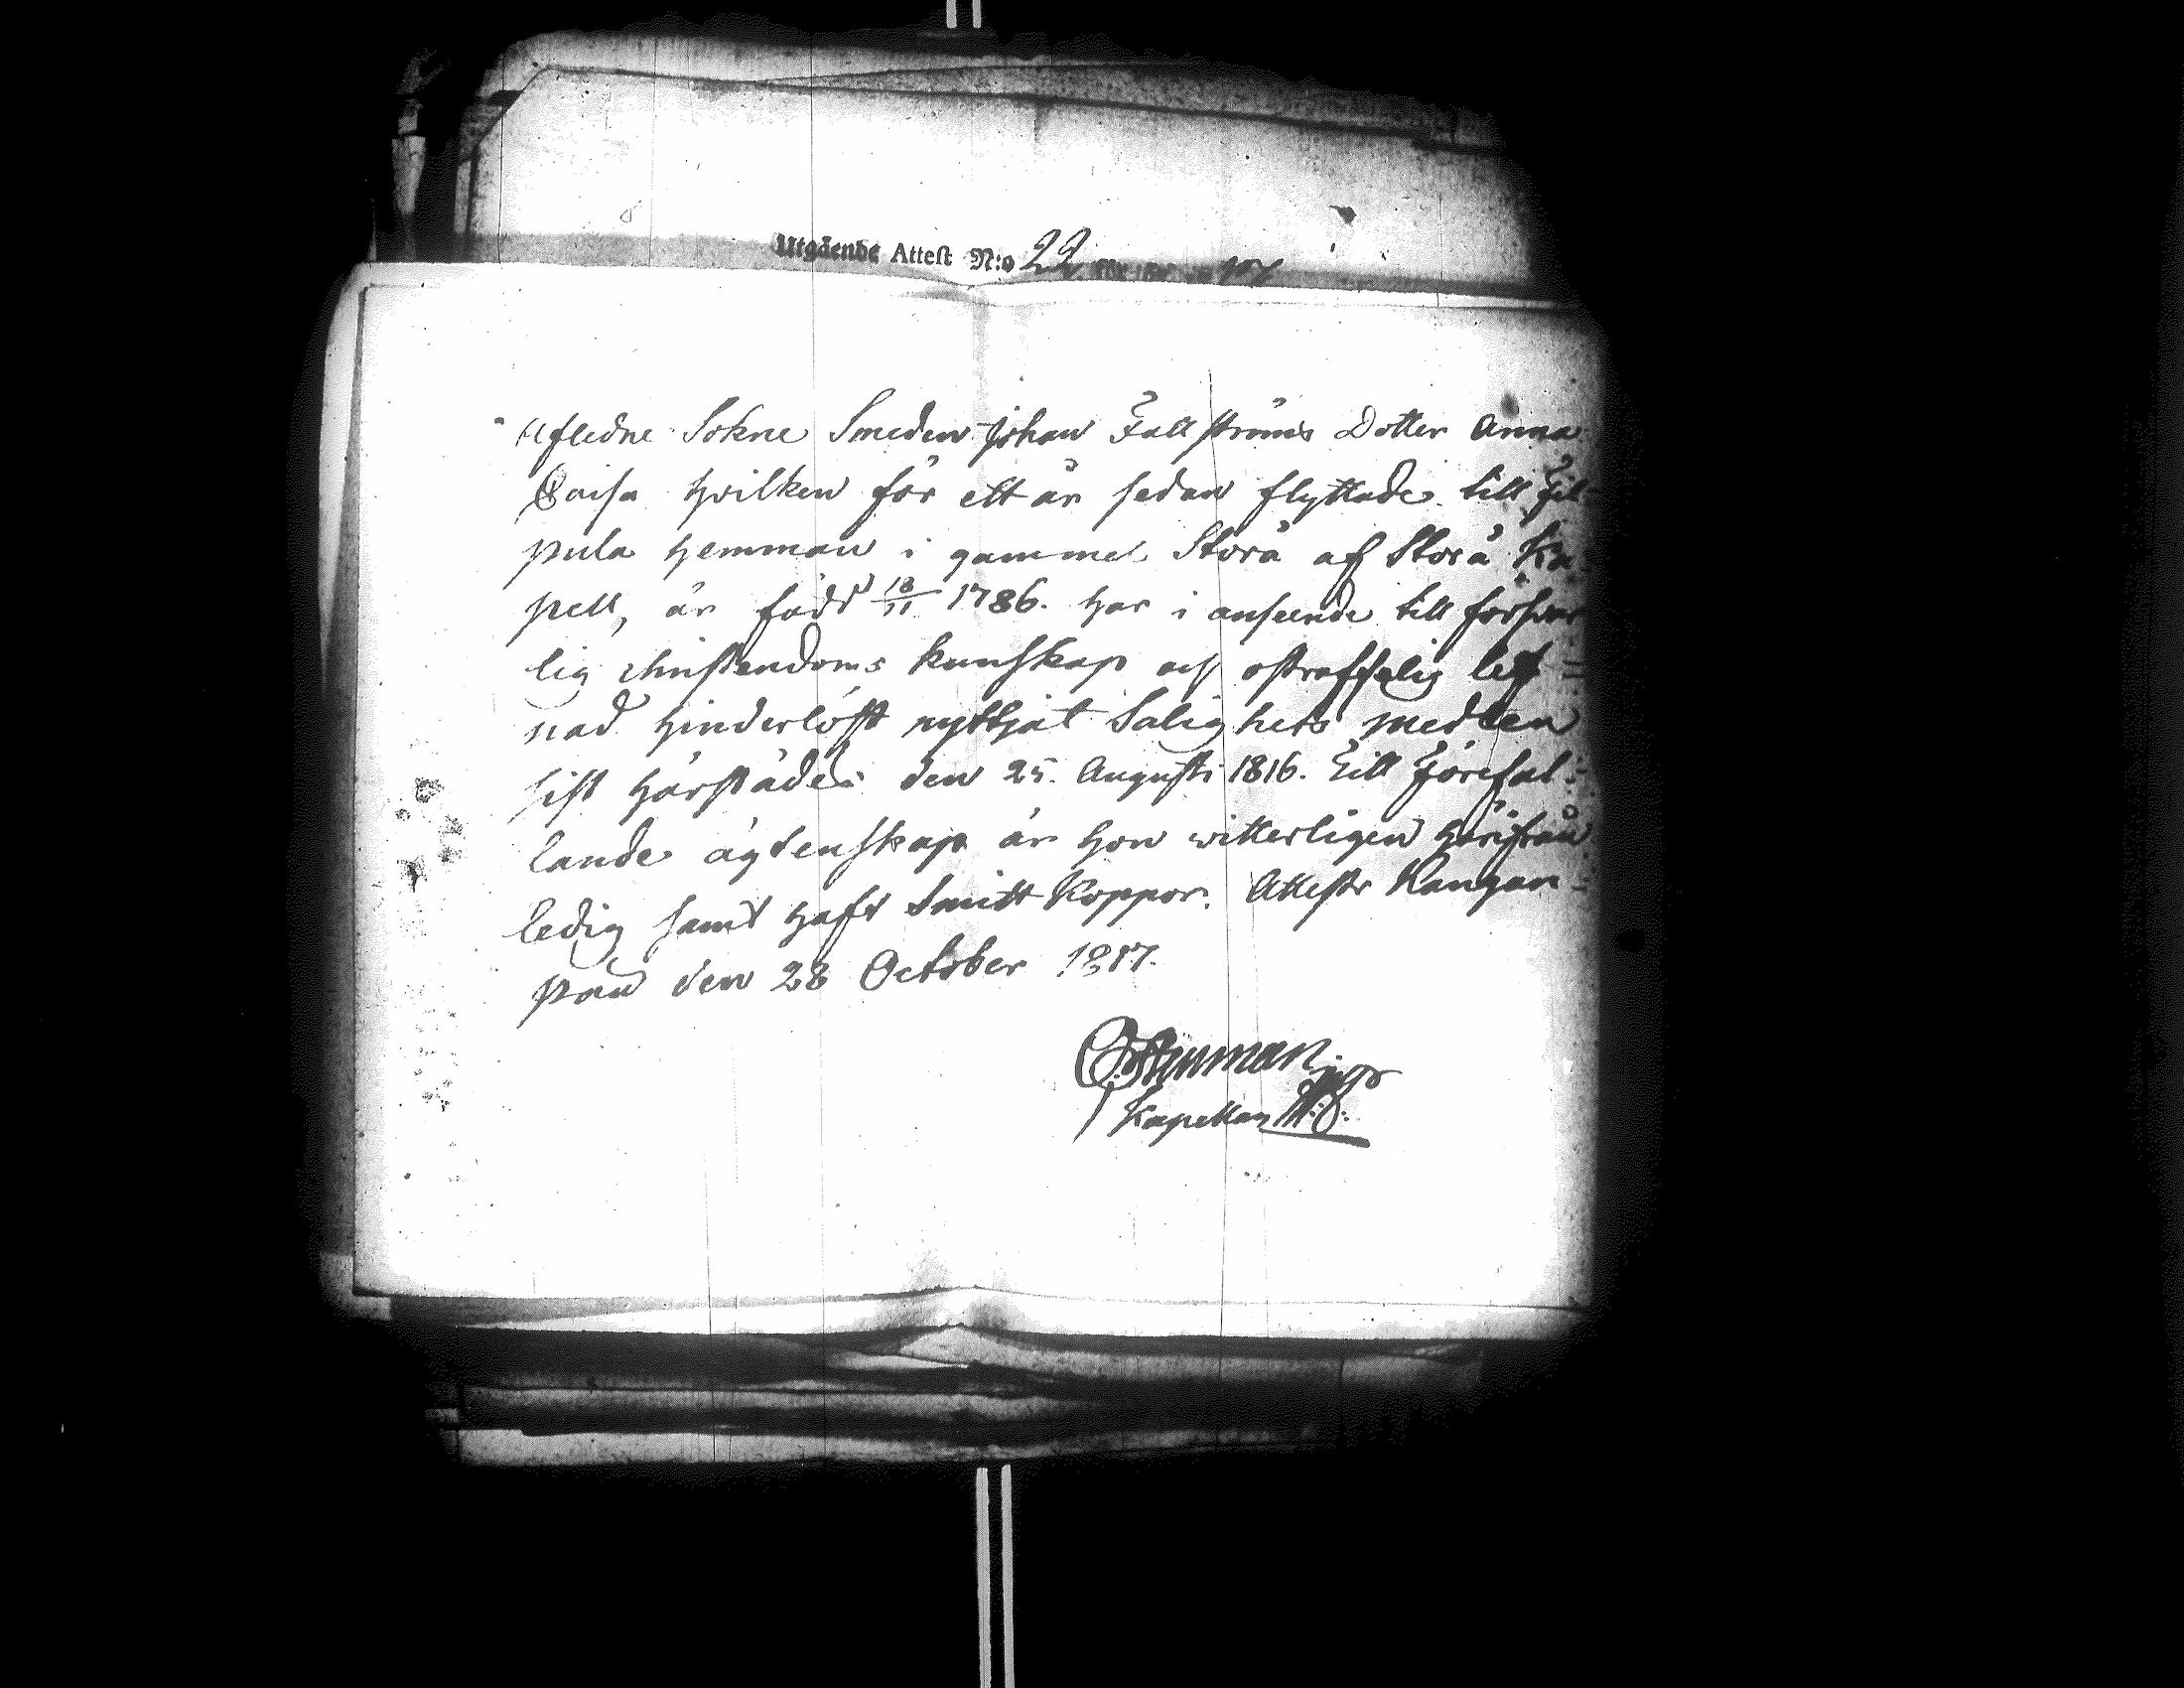 Utgående Attest N:o 22
Afledne Sokne Smeden Johan Fallströms Dotter Anna
Caisa hvilken för ett år sedan flyttade till Fil-
pula hemman i gammel Storå af Storå Ka-
pell, är född 18/11 1786. har i anseende till försvar
lig christendoms kunskap och ostraffelig lef
nad hinderlöst nyttjat Salighets medlen
sist härstädes den 25. Augusti 1816. Till Förefal-
lande ägtenskap är hon witterligen härifrån
ledig samt haft Smitt Koppor. Attestr Kangan
pää den 28 October 1817.
Kapellan